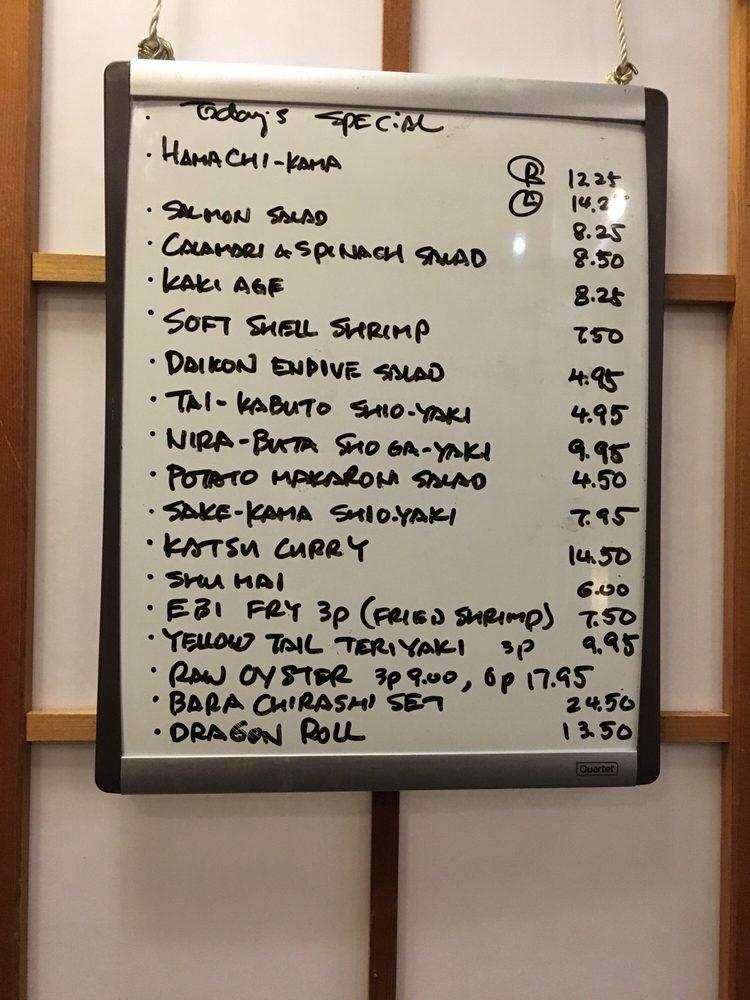 · Today's SPECiAL
· HAMACHI-KAMA Ⓡ 12.25
Ⓛ 14.2
· SALMON SALAD 8.25
· CALAMARI & SPINACH SALAD 8.50
· KAKI AGE 8.25
· SOFT SHELL SHRIMP 7.50
· DAIKON ENDIVE SALAD 4.95
· TAI-KABUTO SHIO-YAKI 4.95
· NIRA-BUTA SHOGA-YAKI 9.95
· POTATO MAKARONI SALAD 4.50
· SAKE-KAMA SHIO.YAKI 7.95
· KATSU CURRY 14.50
· SHU MAI 6.00
· EBI FRY 3p (FRIED SHRIMP) 7.50
· YELLOW TAIL TERIYAKI 3p 9.95
· RAW OYSTER 3p 9.00, 6p 17.95
· BARA CHIRASHI SET 24.50
· DRAGON ROLL 13.50
Quartet